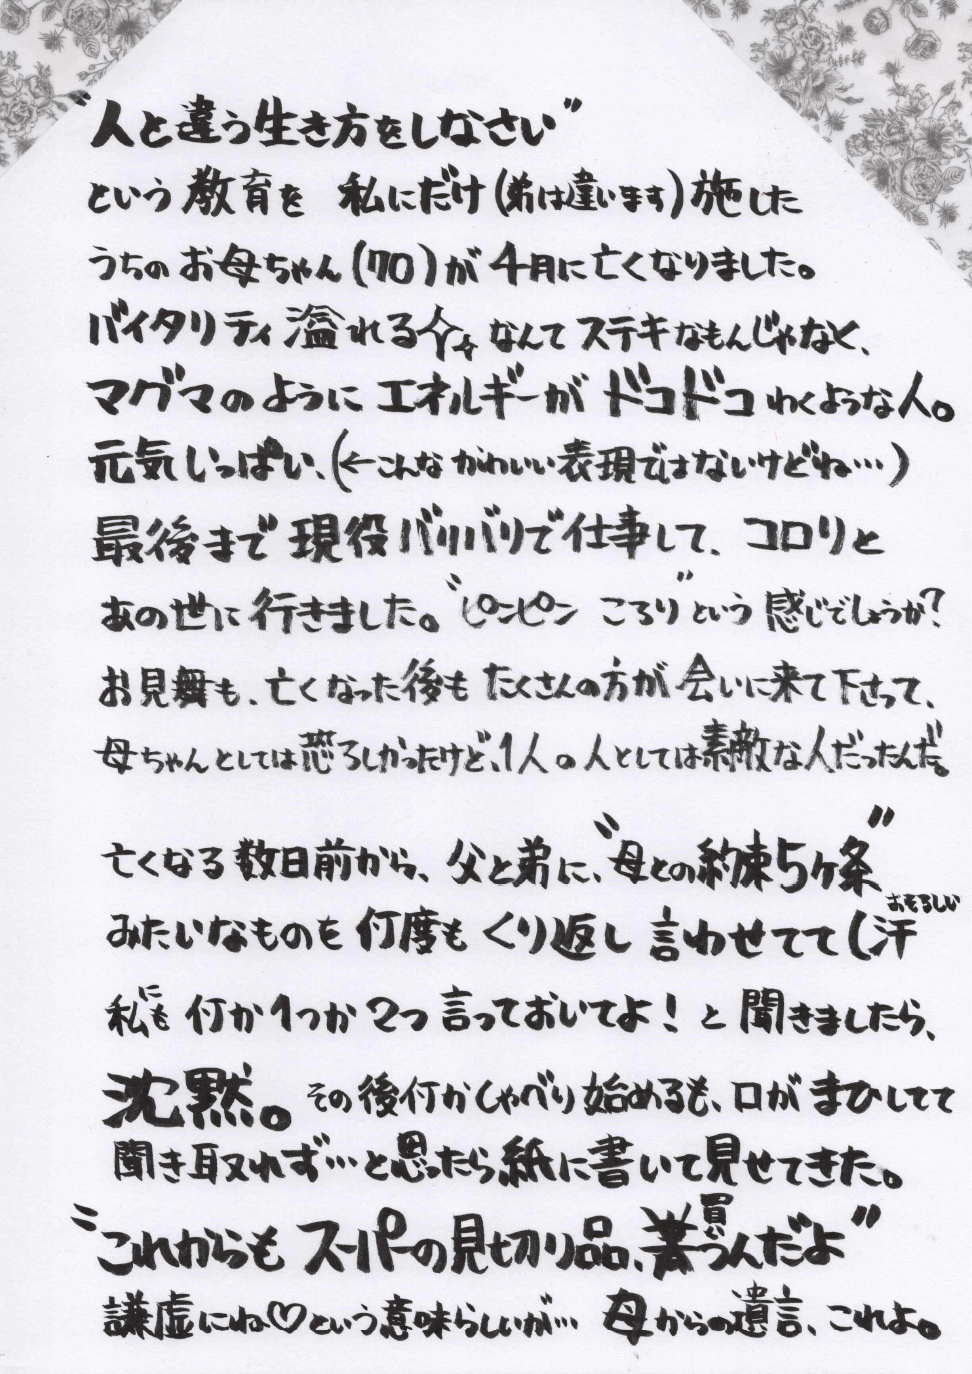 "人と違う生き方をしなさい"
という教育を 私にだけ(弟は違います)施した
うちのお母ちゃん(70)が4月に亡くなりました。
バイタリティ溢れる☆なんてステキなもんじゃなく、
マグマのようにエネルギーがドコドコわくような人。
元気いっぱい、(←こんなかわいい表現ではないけどね…)
最後まで現役バリバリで仕事して、コロリと
あの世に行きました。"ピンピンころり"という感じでしょうか?
お見舞も、亡くなった後もたくさんの方が会いに来て下さって、
母ちゃんとしては恐ろしかったけど、1人の人としては素敵な人だったんだ。
亡くなる数日前から、父と弟に、"母との約束5ヶ条"
みたいなものを何度もくり返し言わせてて(汗
おそろしい
私にも何か1つか2つ言っておいてよ!と聞きましたら、
沈黙。その後何かしゃべり始めるも、口がまひしてて
聞き取れず…と思ったら紙に書いて見せてきた。
"これからもスーパーの見切り品、買うんだよ"
謙虚にね♡という意味らしいが… 母からの遺言、これよ。